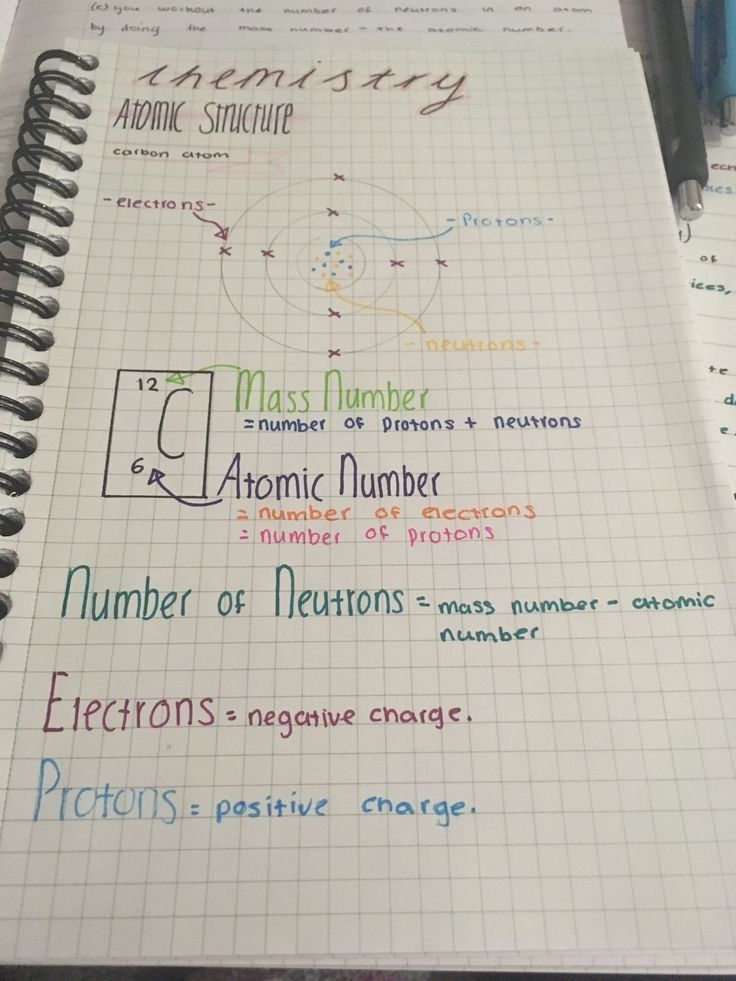 (c) you workout the number of neutrons in an atom
by doing the mass number - the atomic number.
chemistry
Atomic structure
carbon atom
- electrons -
- Protons -
- neutrons -
12
Mass Number
= number of protons + neutrons
C
6
Atomic Number
= number of electrons
= number of protons
Number of Neutrons = mass number - atomic
number
Electrons = negative charge.
Protons = positive charge.
of
te